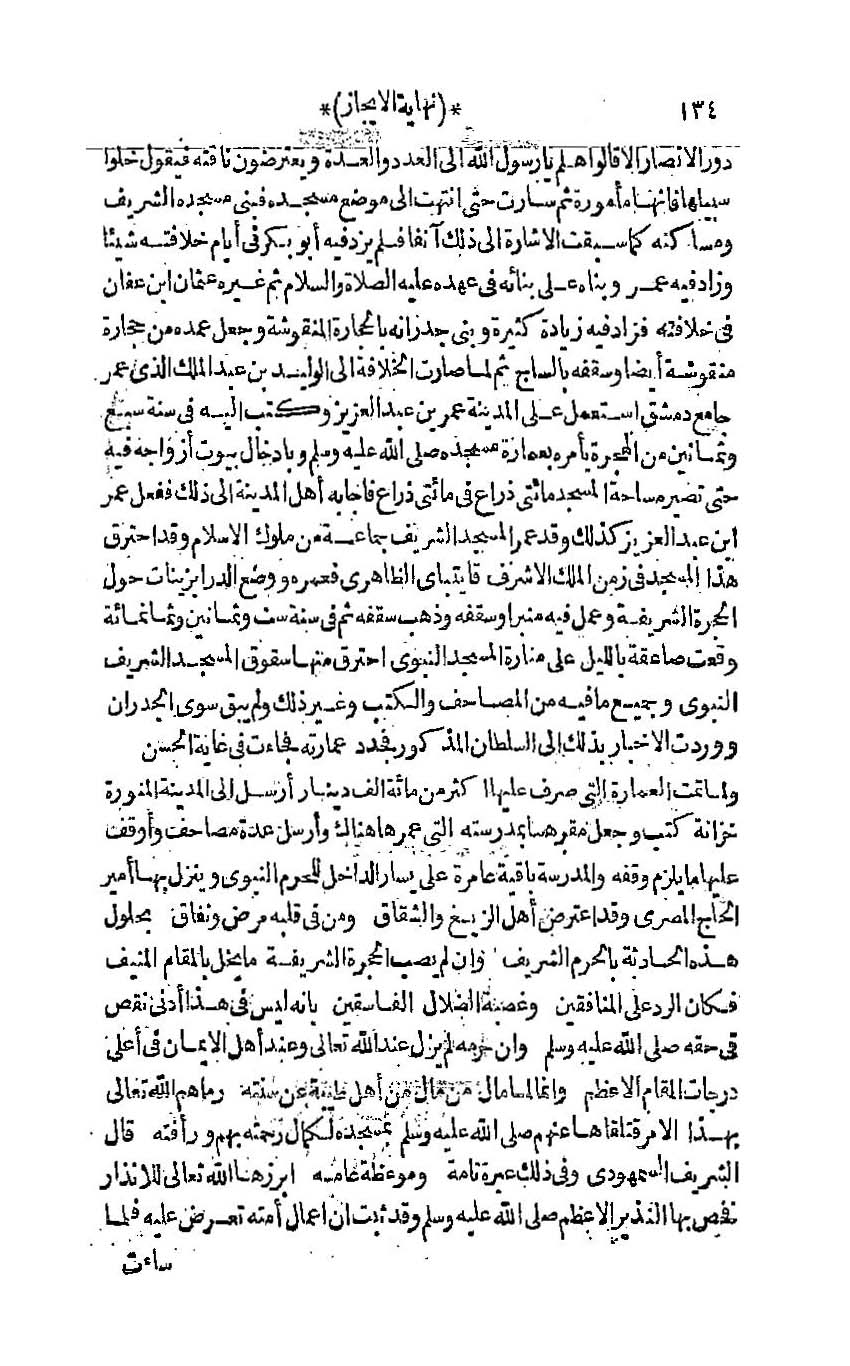 ١٣٤ *(نهاية الايجاز)*
دور الانصار الا قالوا هلم يا رسول الله الى العدد والعدة ويعترضون ناقته فيقول خلوا
سبيلها فانها مأمورة ثم سارت حتى انتهت الى موضع مسجده فبنى مسجده الشريف
ومساكنه كما سبقت الاشارة الى ذلك آنفا فلم يزد فيه أبو بكر فى أيام خلافته شيئا
وزاد فيه عمر وبناه على بنائه فى عهده عليه الصلاة والسلام ثم غيره عثمان ابن عفان
فى خلافته فزاد فيه زيادة كثيرة وبنى جدرانه بالحجارة المنقوشة وجعل عمده من حجارة
منقوشة أيضا وسقفه بالساج ثم لما صارت الخلافة الى الوليد بن عبد الملك الذى عمر
جامع دمشق استعمل على المدينة عمر بن عبد العزيز وكتب اليه فى سنة سبع
وثمانين من الهجرة يأمره بعمارة مسجده صلى الله عليه وسلم وبادخال بيوت أزواجه فيه
حتى تصير مساحة المسجد مائتى ذراع فى مائتى ذراع فاجابه أهل المدينة الى ذلك ففعل عمر
ابن عبد العزيز كذلك وقد عمر المسجد الشريف جماعة من ملوك الاسلام وقد احترق
هذا المسجد فى زمن الملك الاشرف قايتباى الظاهرى فعمره ووضع الدرابزينات حول
الحجرة الشريفة وعمل فيه منبرا وسقفه وذهب سقفه ثم فى سنة ست وثمانين وثمانمائة
وقعت صاعقة بالليل على منارة المسجد النبوى احترق منها سقوف المسجد الشريف
النبوى وجميع ما فيه من المصاحف والكتب وغير ذلك ولم يبق سوى الجدران
ووردت الاخبار بذلك الى السلطان المذكور فجدد عمارته فجاءت فى غاية الحسن
ولما تمت العمارة التى صرف عليها اكثر من مائة الف دينار أرسل الى المدينة المنورة
خزانة كتب وجعل مقرها بمدرسته التى عمرها هناك وأرسل عدة مصاحف وأوقف
عليها ما يلزم وقفه والمدرسة باقية عامرة على يسار الداخل للحرم النبوى وينزل بها أمير
الحاج المصرى وقد اعترض أهل الزيغ والشقاق ومن فى قلبه مرض ونفاق بحلول
هذه الحادثة بالحرم الشريف وان لم يصب الحجرة الشريفة ما يخل بالمقام المنيف
فكان الرد على المنافقين وعصبة الضلال الفاسقين بانه ليس فى هذا أدنى نقص
فى حقه صلى الله عليه وسلم وان حرمه لم يزل عند الله تعالى وعند أهل الايمان فى أعلى
درجات المقام الاعظم وانما لما مال من مال من أهل طيبة عن سنته رماهم الله تعالى
بهذا الامر فتلقاها عنهم صلى الله عليه وسلم بمسجده لكمال رحمته بهم ورأفته قال
الشريف السمهودى وفى ذلك عبرة تامة وموعظة عامه ابرزها الله تعالى للانذار
فخص بها النذير الاعظم صلى الله عليه وسلم وقد ثبت ان اعمال أمته تعرض عليه فلما
ساءت